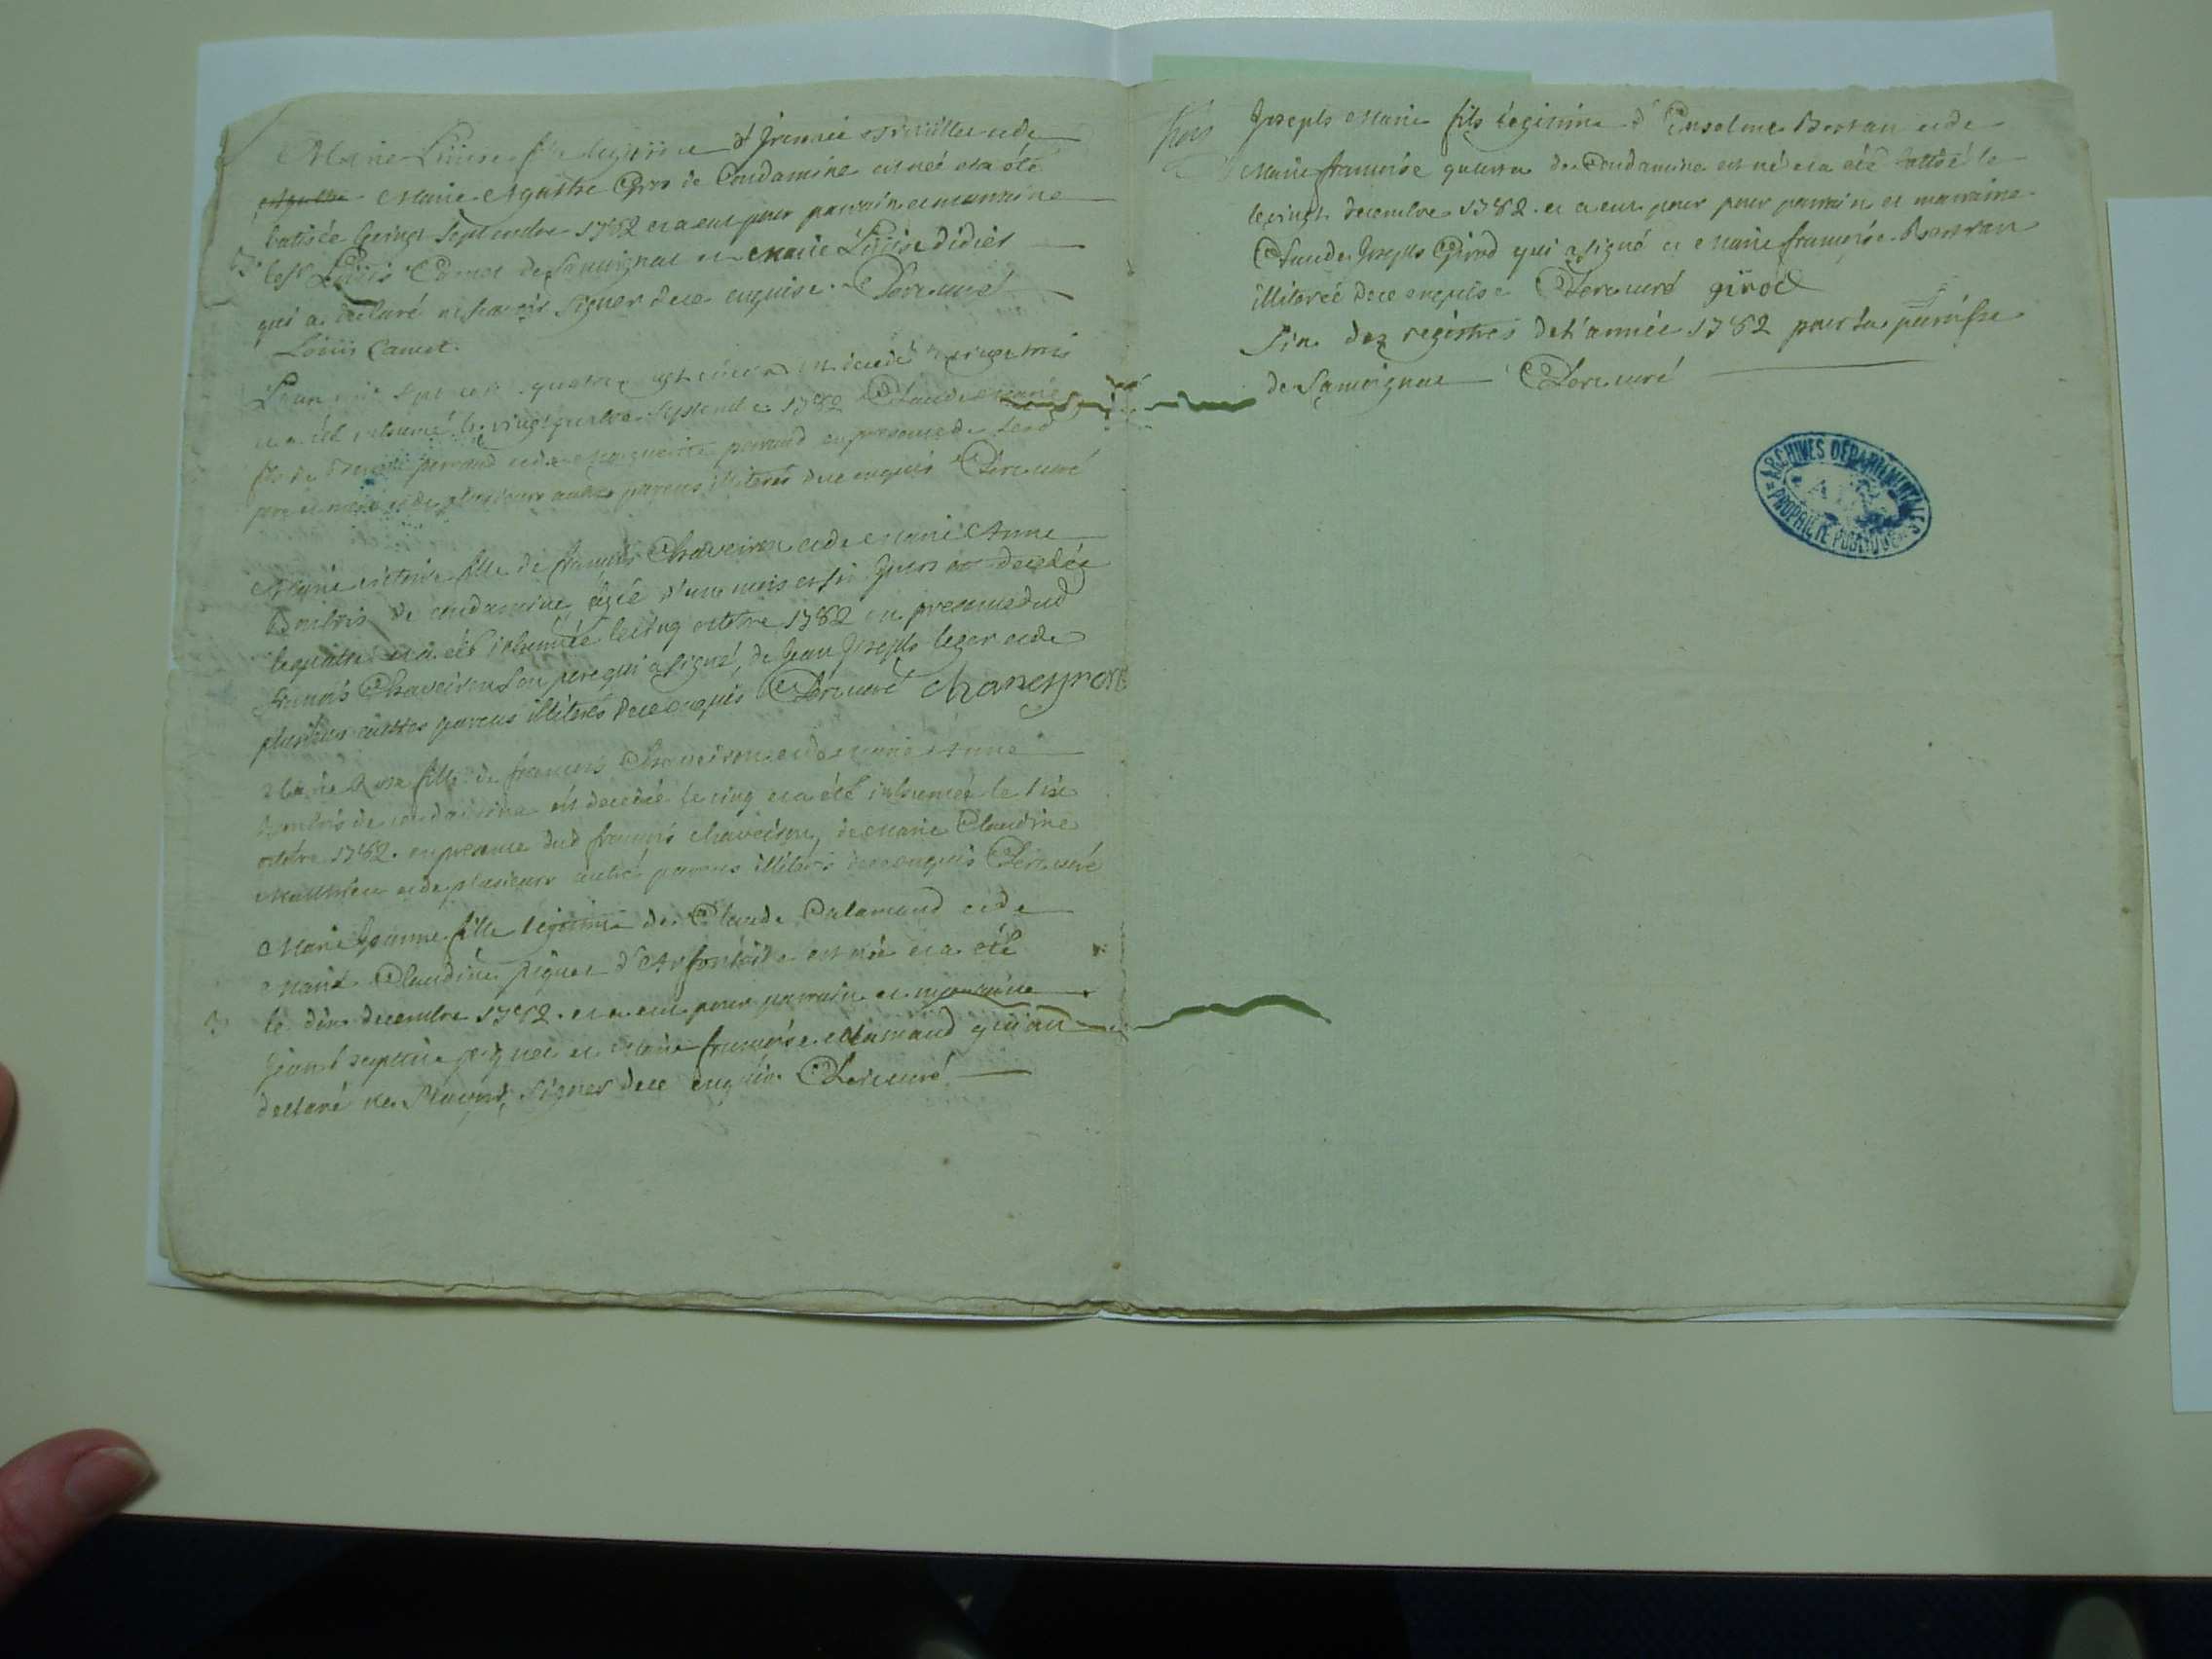 Marie Louise fille legitime d'
Marie Agathe Gros de Condamine est neé et a été
batisée le vingt Septembre 1782 et a eut pour parrain et marraine
le Sr Louis Camet de Samoignat et Marie Louise didier
qui a declaré ne savoir signer de ce enquise. curé
Louis Camet.
L'an mil sept cent quatre vingt deux est decedé le vingt trois
et a été inhumé le vingt quatre Septembre 1782 Claude Marie
fils de perraud et de Marguerite perraud en presence de sesd
pere et mere et de plusieurs autres parens illiterés de ce enquis curé
Marie victoire fille de françois Chaveiron et de Marie Anne
de condamine, âgée d'un mois et six jours est decedée
le quatre et a été inhumée le cinq octobre 1782 en presence dud
françois Chaveiron son pere qui a signé, de Jean Joseph leger et de
plusieurs autres parens illiterés de ce enquis curé chaveyron
Marie Rose fille de françois Chaveiron et de Marie Anne
de condamine est decedée le cinq et a été inhumée le six
octobre 1782. en presence dud françois chaveiron, de Marie Claudine
Matthieu et de plusieurs autres parens illiterés de ce enquis curé
Marie Jeanne fille légitime de Claude et de
Marie Claudine est née et a été
le dix decembre 1782. et a eut pour parrain et marraine
Jean baptiste et Marie françoise qui ont
declaré ne sçavoir signer de ce enquis. curé
Joseph Marie fils légitime d' et de
Marie françoise de Condamine est né et a été battisé le
le vingt decembre 1782. et a eut pour pour parrain et marraine
Claude Joseph Girod qui a signé et Marie françoise
illiterée de ce enquise curé girod
fin des registres de l'année 1782 pour la paroisse
de Samoignat curé
ARCHIVES DÉPARTEMENTALES
AIN
PROPRIÉTÉ PUBLIQUE